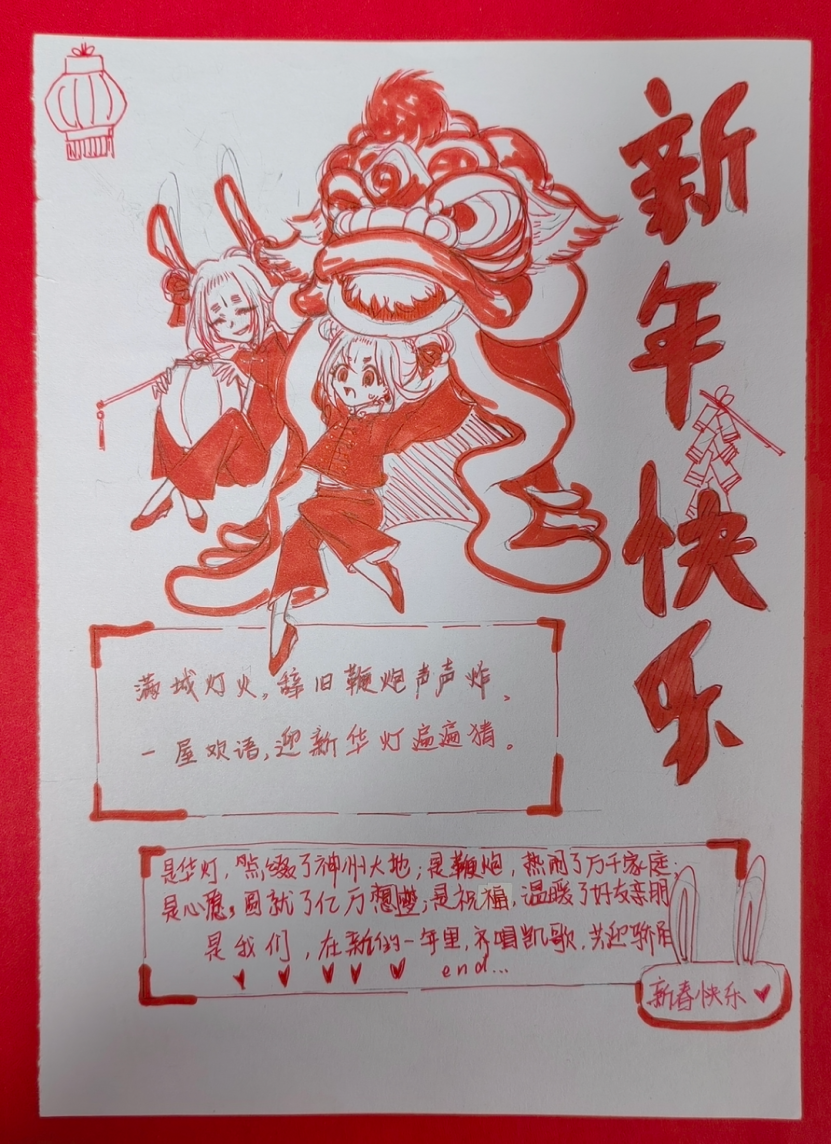 新年快乐
满城灯火，辞旧鞭炮声声炸。
一屋欢语，迎新华灯遍遍猜。
是华灯，点缀了神州大地；是鞭炮，热闹了万千家庭；
是心愿，圆就了亿万想；是祝福，温暖了好友亲朋
是我们，在新的一年里，齐唱凯歌，共迎骄阳
end...
新春快乐